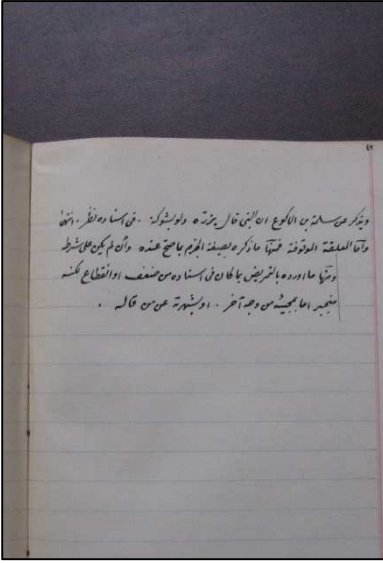 ويذكر عن سلمة بن الأكوع ان النبى قال يزرّه ولو بشوكة . فى اسناده نظر . انتهى
وأما المعلقة الموقوفة فمنها ما ذكره بصيغة الجزم بما صح عنده وأن لم يكن على شرطه
ومنها ما أورده بالتمريض بما كان فى اسناده من ضعف او انقطاع لكنه
منجبر اما بمجيئه من وجه آخر . او بشهرته عن من قاله .